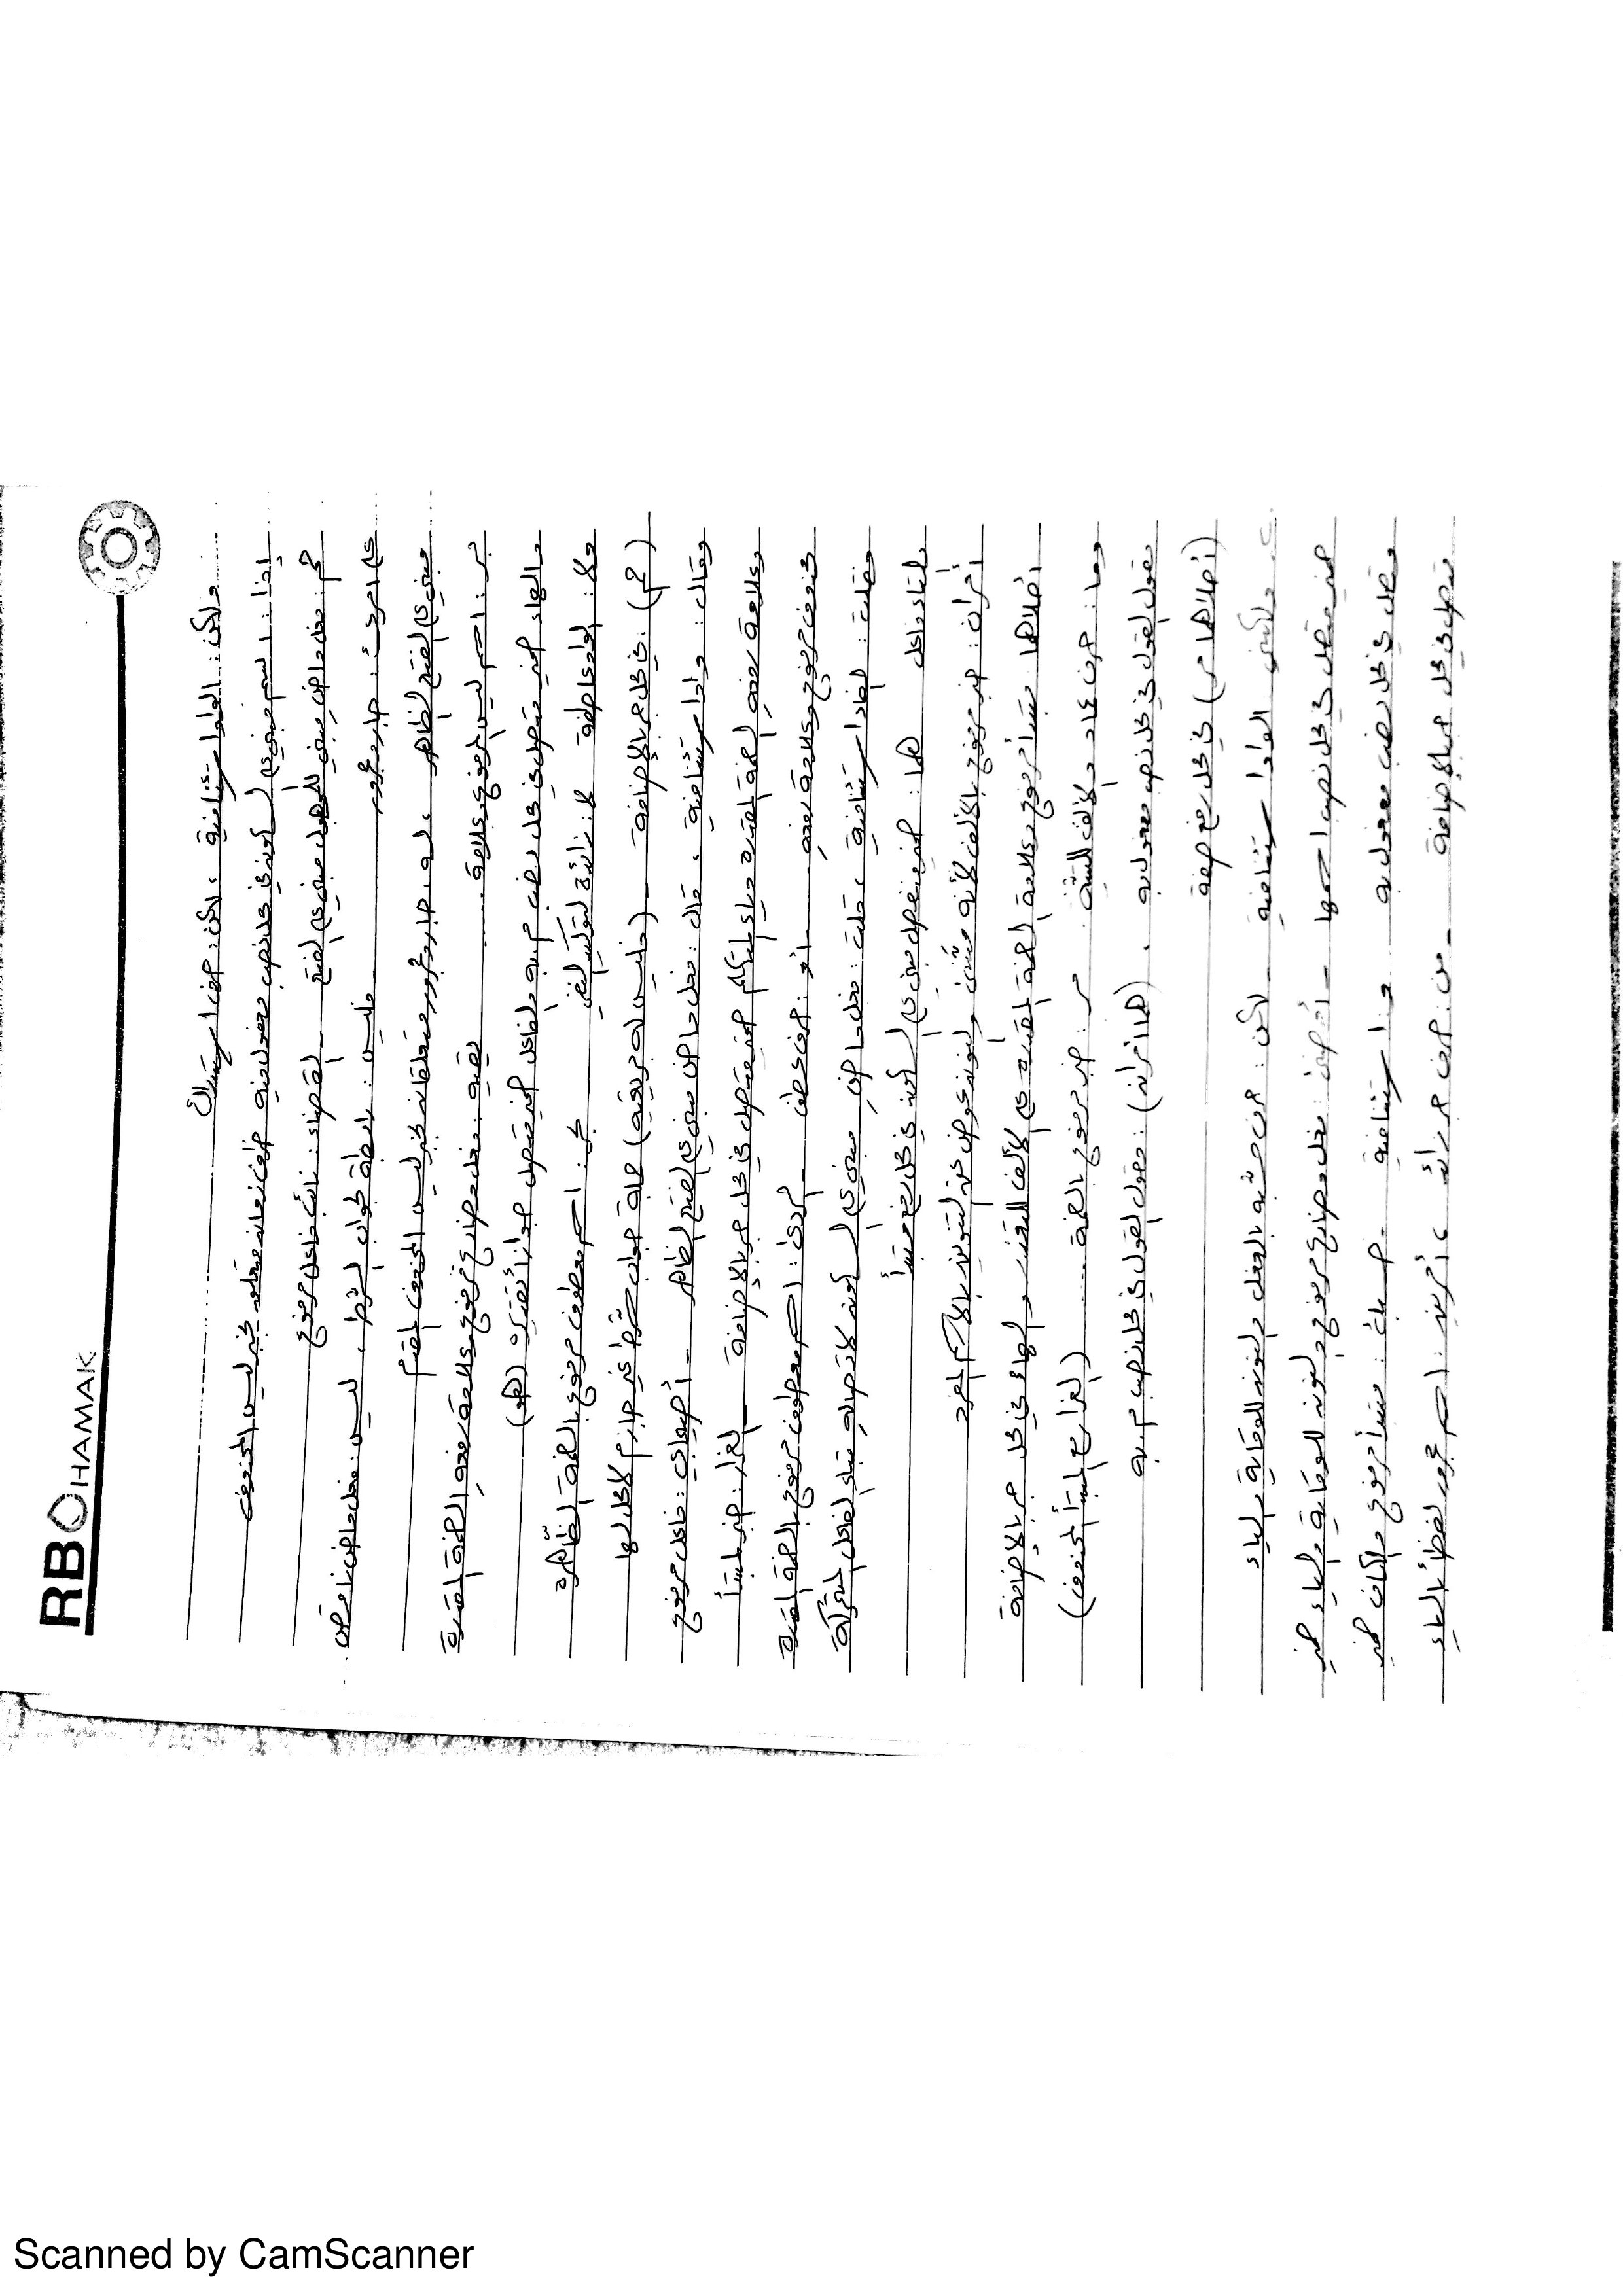 RB HAMAK
ولكن : الواو استئنافية ، لكن : حرف استدراك
إذا : اسم مبني على السكون في محل نصب مفعول فيه ظرف زمان متعلق بخبر ليس المحذوف
حُمّ : فعل ماض مبني للمجهول مبني على الفتح - القضاء : نائب فاعل مرفوع
على امرئ : جار ومجرور - فليس : رابطة لجواب الشرط ، ليس : فعل ماض ناقص
مبني على الفتح الظاهر . له : جار ومجرور متعلقان بخبر ليس المحذوف المقدم
بر : اسم ليس مرفوع وعلامة ...... يقيه : فعل مضارع مرفوع وعلامة رفعه الضمة المقدرة
والهاء ضمير متصل في محل نصب م به والفاعل ضمير متصل جوازاً تقديره (هو)
ولا : الواو عاطفة لا : زائدة لتوكيد النفي بحر : اسم معطوف مرفوع بالضمة الظاهرة
(حم) : في محل جر بالإضافة - (فليس له بر يقيه) جملة جواب شرط غير جازم لا محل لها
وقال : واو استئنافية ، قال : فعل ماض مبني على الفتح الظاهر - أصيحابي : فاعل مرفوع
وعلامة رفعه الضمة المقدرة وياء المتكلم ضمير متصل في محل جر بالإضافة - الفرار : خبر لمبتدأ
محذوف مرفوع وعلامة رفعه - أو : حرف عطف - الردى : اسم معطوف مرفوع بالضمة المقدرة
وقلت : الواو استئنافية ، قلت : فعل ماض مبني على السكون لاتصاله بتاء الفاعل المتحركة
والتاء فاعل هما : ضمير منفصل مبني على السكون في محل رفع مبتدأ
أمران : خبر مرفوع بالألف لأنه مثنى والنون عوض عن التنوين بالاسم المفرد
أحلاهما مبتدأ مرفوع وعلامة الضمة المقدرة على الألف للتعذر والهاء في محل جر بالإضافة
وما : حرف عماد والألف للتثنية مر : خبر مرفوع بالضمة ..... (الفرار لمبتدأ المحذوف)
مقول القول في محل نصب مفعول به . (هما أمران) : مقول القول في محل نصب م به
(أحلاهما مر) في محل رفع صفة
ولكنني الواو استئنافية - لكن : حرف مشبه بالفعل والنون للوقاية والياء
ضمير متصل في محل نصب اسمها - فعل مضارع مرفوع والنون للوقاية والياء ضمير
متصل في محل نصب مفعول به و : استئنافية - حسبك : مبتدأ مرفوع والكاف ضمير
متصل في محل جر بالإضافة - من : حرف جر زائد ، أمرين : اسم مجرور لفظاً بالياء
Scanned by CamScanner